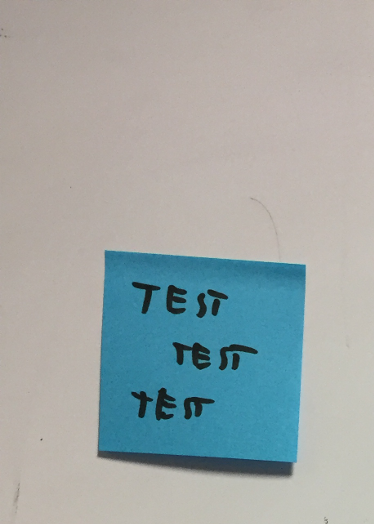 TEST
TEST
TEST